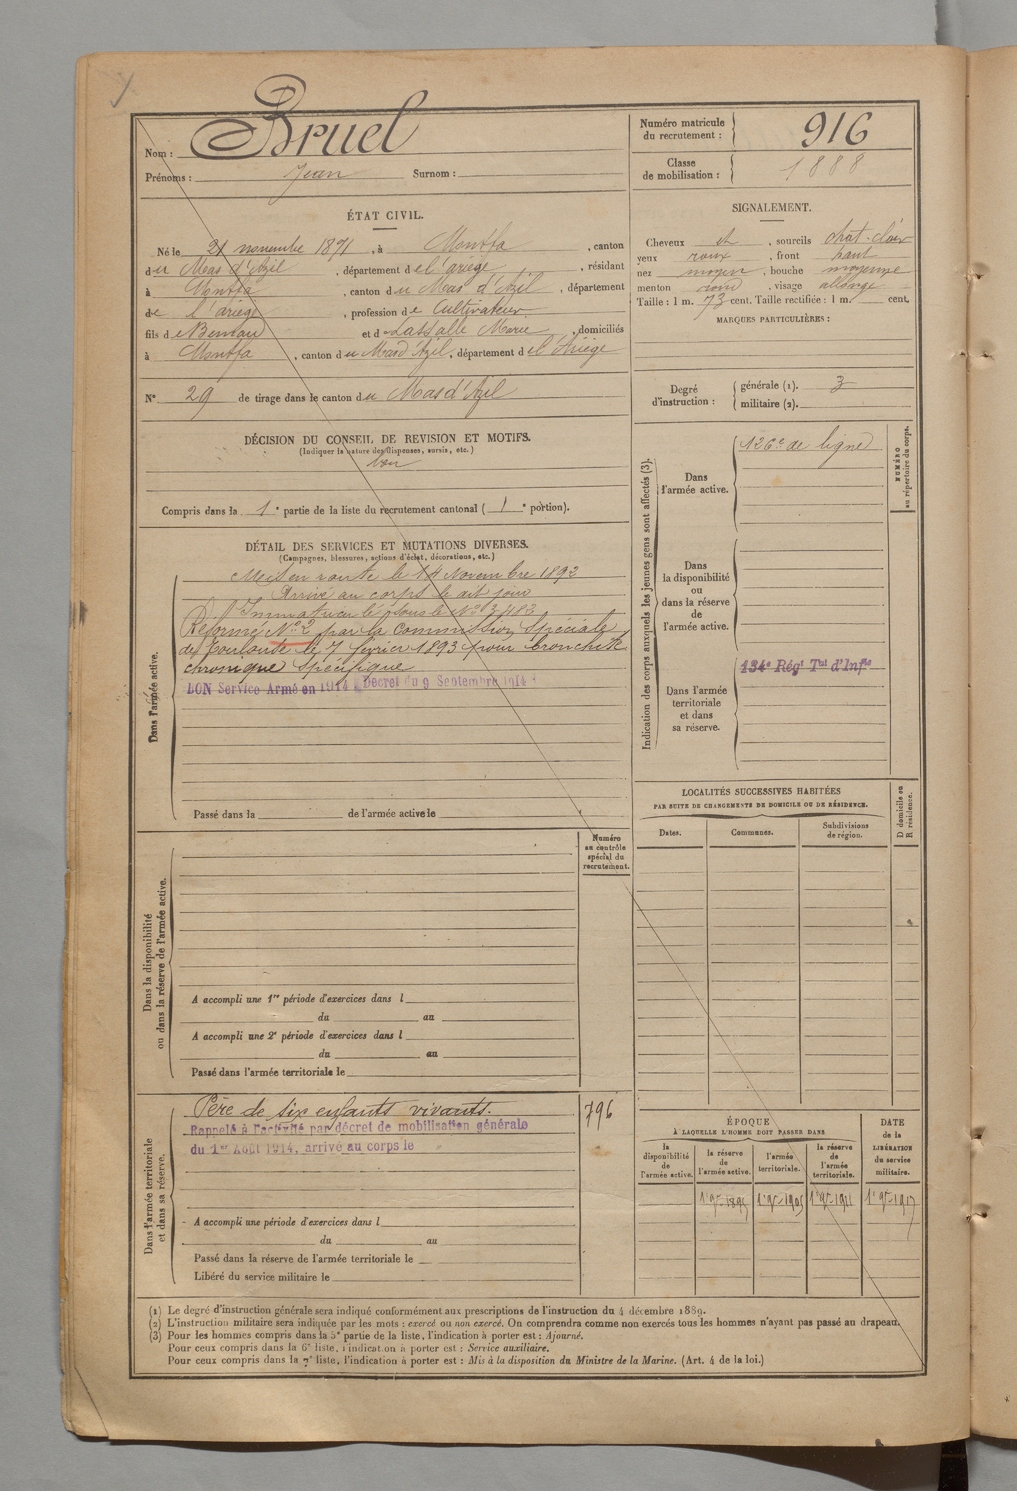 Nom : Bruel
Prénoms : Jean Surnom :
Numéro matricule du recrutement : 916
Classe de mobilisation : 1888
ÉTAT CIVIL.
Né le 21 novembre 1871, à Montfa, canton
du Mas d'Azil, département de l'ariège, résidant
à Montfa, canton du Mas d'Azil, département
de l'ariège, profession de Cultivateur
fils de et de Lassalle Marie, domiciliés
à Montfa, canton du Mas d'Azil, département de l'Ariège
N° 29 de tirage dans le canton du Mas d'Azil
SIGNALEMENT.
Cheveux et, sourcils chat-clair
yeux roux, front haut
nez moyen, bouche moyenne
menton rond, visage allongé
Taille : 1 m. 73 cent. Taille rectifiée : 1 m. cent.
MARQUES PARTICULIÈRES :
Degré d'instruction : générale (1). 3
militaire (2).
DÉCISION DU CONSEIL DE REVISION ET MOTIFS.
(Indiquer la nature des dispenses, sursis, etc.)
bon
Compris dans la 1e partie de la liste du recrutement cantonal (1e portion).
DÉTAIL DES SERVICES ET MUTATIONS DIVERSES.
(Campagnes, blessures, actions d'éclat, décorations, etc.)
Dans l'armée active.
Mis en route le 14 Novembre 1892
Arrivé au corps le dit jour
Immatriculé sous le N° 3483
Réformé N° 2 par la Commission Spéciale
de Toulouse le 7 février 1893 pour bronchite
chronique spécifique
BON Service Armé en 1914 Décret du 9 Septembre 1914
Passé dans la de l'armée active le
Indication des corps auxquels les jeunes gens sont affectés (3).
NUMÉRO au répertoire du corps.
Dans l'armée active.
126e de ligne
Dans la disponibilité ou dans la réserve de l'armée active.
Dans l'armée territoriale et dans sa réserve.
134e Régt Tal d'Infie
LOCALITÉS SUCCESSIVES HABITÉES
PAR SUITE DE CHANGEMENTS DE DOMICILE OU DE RÉSIDENCE.
D domicile ou R résidence.
Dates. Communes. Subdivisions de région.
Numéro au contrôle spécial du recrutement.
Dans la disponibilité ou dans la réserve de l'armée active.
A accompli une 1re période d'exercices dans l
du au
A accompli une 2e période d'exercices dans l
du au
Passé dans l'armée territoriale le
Dans l'armée territoriale et dans sa réserve.
Père de six enfants vivants. 796
Rappelé à l'activité par décret de mobilisation générale
du 1er Août 1914, arrivé au corps le
A accompli une période d'exercices dans l
du au
Passé dans la réserve de l'armée territoriale le
Libéré du service militaire le
ÉPOQUE
A LAQUELLE L'HOMME DOIT PASSER DANS
DATE de la LIBÉRATION du service militaire.
la disponibilité de l'armée active. la réserve de l'armée active. l'armée territoriale. la réserve de l'armée territoriale.
1er 9bre 1895 1er 9bre 1905 1er 9bre 1911 1er 9bre 1917
(1) Le degré d'instruction générale sera indiqué conformément aux prescriptions de l'instruction du 4 décembre 1889.
(2) L'instruction militaire sera indiquée par les mots : exercé ou non exercé. On comprendra comme non exercés tous les hommes n'ayant pas passé au drapeau.
(3) Pour les hommes compris dans la 5e partie de la liste, l'indication à porter est : Ajourné.
Pour ceux compris dans la 6e liste, l'indication à porter est : Service auxiliaire.
Pour ceux compris dans la 7e liste, l'indication à porter est : Mis à la disposition du Ministre de la Marine. (Art. 4 de la loi.)